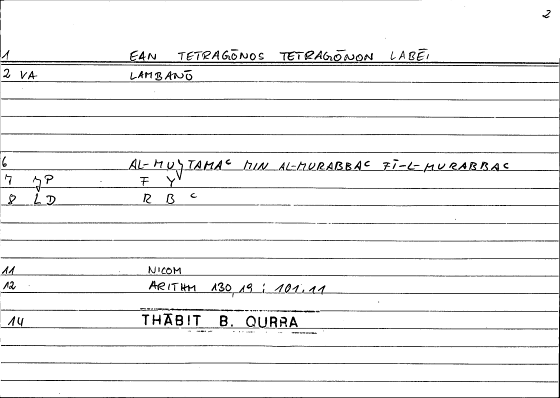 2
1 EAN TETRAGŌNOS TETRAGŌNON LABĒI
2 VA LAMBANŌ
6 AL-MUǦTAMAᶜ MIN AL-MURABBAᶜ FĪ-L-MURABBAᶜ
7 ǦP F Y
8 LD R B ᶜ
11 NICOM
12 ARITHM 130,19 : 101.11
14 THĀBIT B. QURRA